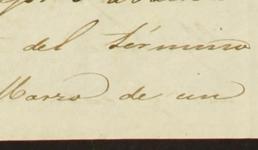 del término
Marzo de un